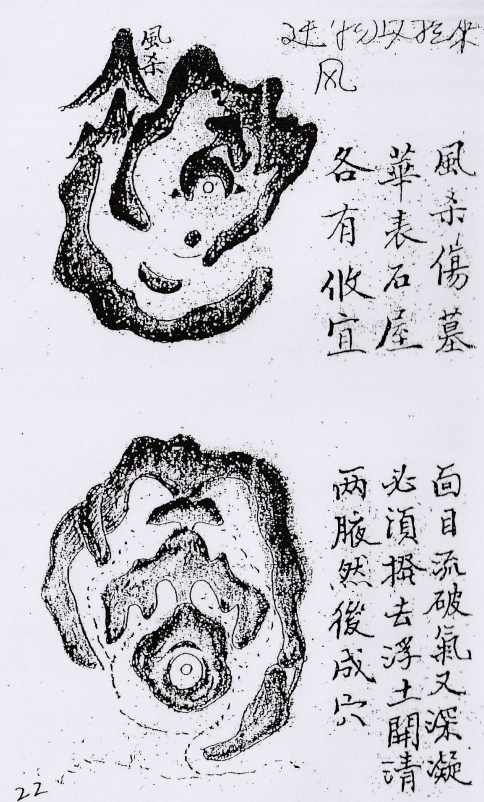 風杀
风
風杀傷墓
華表石屋
各有攸宜
面目流破氣又深凝
必須去浮土開清
两腋然後成穴
22